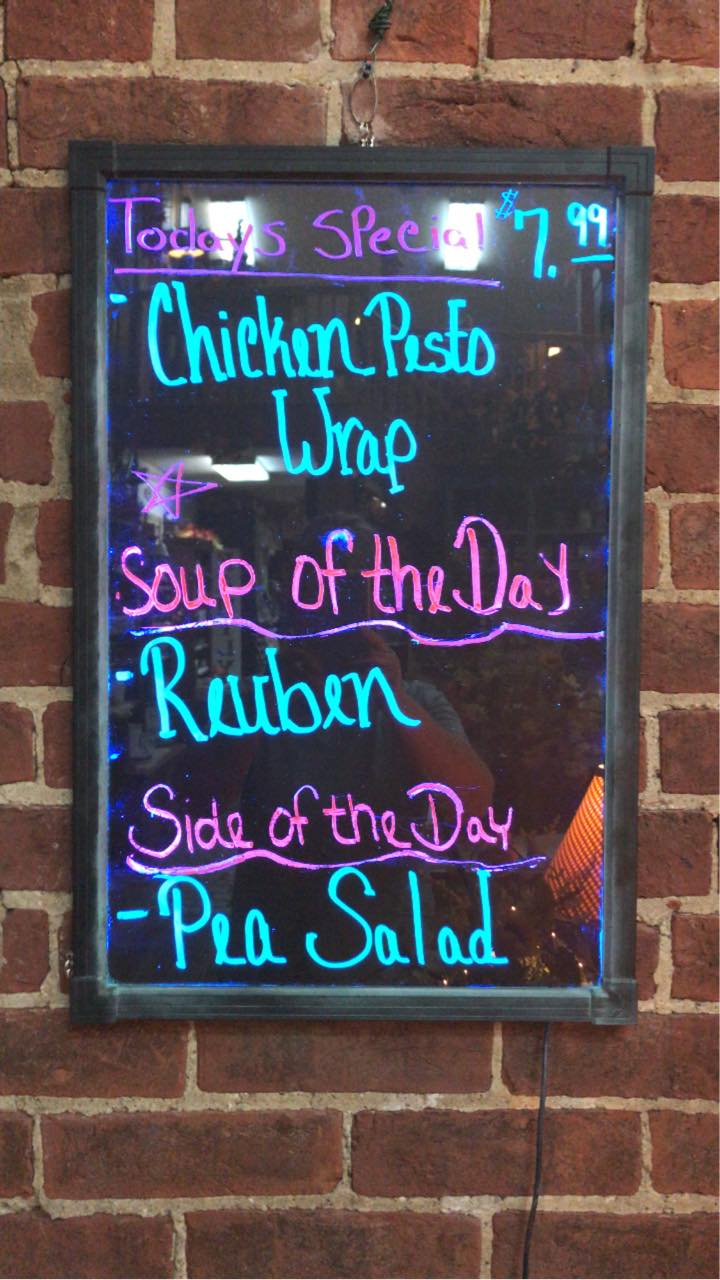 Todays Special $7.99
- Chicken Pesto
Wrap
Soup of the Day
- Reuben
Side of the Day
- Pea Salad